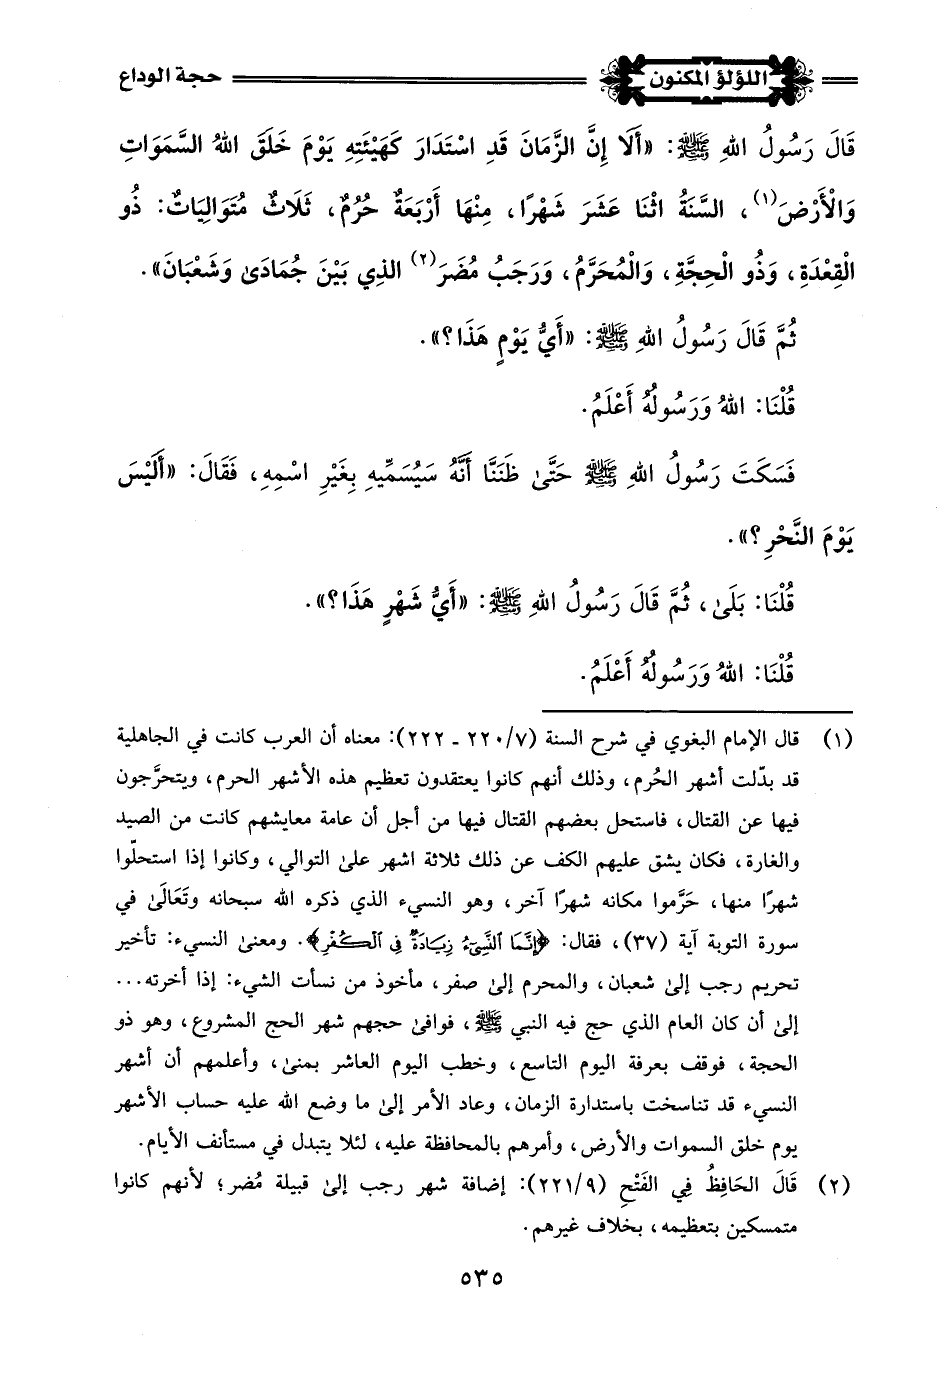 اللؤلؤ المكنون حجة الوداع
قَالَ رَسُولُ اللهِ ﷺ: «أَلَا إِنَّ الزَّمَانَ قَدِ اسْتَدَارَ كَهَيْئَتِهِ يَوْمَ خَلَقَ اللهُ السَّمَوَاتِ
وَالْأَرْضَ(١)، السَّنَةُ اثْنَا عَشَرَ شَهْرًا، مِنْهَا أَرْبَعَةٌ حُرُمٌ، ثَلَاثٌ مُتَوَالِيَاتٌ: ذُو
الْقِعْدَةِ، وَذُو الْحِجَّةِ، وَالْمُحَرَّمُ، وَرَجَبُ مُضَرَ(٢) الذِي بَيْنَ جُمَادَىٰ وَشَعْبَانَ».
ثُمَّ قَالَ رَسُولُ اللهِ ﷺ: «أَيُّ يَوْمٍ هَذَا؟».
قُلْنَا: اللهُ وَرَسُولُهُ أَعْلَمُ.
فَسَكَتَ رَسُولُ اللهِ ﷺ حَتَّىٰ ظَنَنَّا أَنَّهُ سَيُسَمِّيهِ بِغَيْرِ اسْمِهِ، فَقَالَ: «أَلَيْسَ
يَوْمَ النَّحْرِ؟».
قُلْنَا: بَلَىٰ، ثُمَّ قَالَ رَسُولُ اللهِ ﷺ: «أَيُّ شَهْرٍ هَذَا؟».
قُلْنَا: اللهُ وَرَسُولُهُ أَعْلَمُ.
(١) قال الإمام البغوي في شرح السنة (٧/ ٢٢٠ ـ ٢٢٢): معناه أن العرب كانت في الجاهلية
قد بدّلت أشهر الحُرم، وذلك أنهم كانوا يعتقدون تعظيم هذه الأشهر الحرم، ويتحرَّجون
فيها عن القتال، فاستحل بعضهم القتال فيها من أجل أن عامة معايشهم كانت من الصيد
والغارة، فكان يشق عليهم الكف عن ذلك ثلاثة اشهر علىٰ التوالي، وكانوا إذا استحلّوا
شهرًا منها، حَرَّموا مكانه شهرًا آخر، وهو النسيء الذي ذكره الله سبحانه وتَعَالَىٰ في
سورة التوبة آية (٣٧)، فقال: ﴿إِنَّمَا ٱلنَّسِىٓءُ زِيَادَةٌ فِى ٱلْكُفْرِ﴾. ومعنىٰ النسيء: تأخير
تحريم رجب إلىٰ شعبان، والمحرم إلىٰ صفر، مأخوذ من نسأت الشيء: إذا أخرته...
إلىٰ أن كان العام الذي حج فيه النبي ﷺ، فوافىٰ حجهم شهر الحج المشروع، وهو ذو
الحجة، فوقف بعرفة اليوم التاسع، وخطب اليوم العاشر بمنىٰ، وأعلمهم أن أشهر
النسيء قد تناسخت باستدارة الزمان، وعاد الأمر إلىٰ ما وضع الله عليه حساب الأشهر
يوم خلق السموات والأرض، وأمرهم بالمحافظة عليه، لئلا يتبدل في مستأنف الأيام.
(٢) قَالَ الحَافِظُ فِي الفَتْحِ (٢٢١/٩): إضافة شهر رجب إلىٰ قبيلة مُضر؛ لأنهم كانوا
متمسكين بتعظيمه، بخلاف غيرهم.
٥٣٥